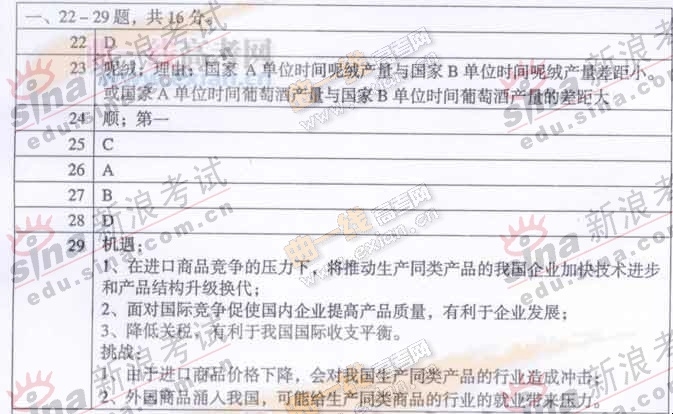 一、22－29题，共16分。
22 D
23 呢绒；理由：国家 A 单位时间呢绒产量与国家 B 单位时间呢绒产量差距小。
或国家 A 单位时间葡萄酒产量与国家 B 单位时间葡萄酒产量的差距大
24 顺；第一
25 C
26 A
27 B
28 D
29 机遇：
1、在进口商品竞争的压力下，将推动生产同类产品的我国企业加快技术进步
和产品结构升级换代；
2、面对国际竞争促使国内企业提高产品质量，有利于企业发展；
3、降低关税，有利于我国国际收支平衡。
挑战：
1、由于进口商品价格下降，会对我国生产同类产品的行业造成冲击；
2、外国商品涌入我国，可能给生产同类商品的行业的就业带来压力。
sina 新浪考试
edu.sina.com.cn
sina 新浪考试
edu.sina.com.cn
sina 新浪考试
edu.sina.com.cn
sina 新浪考试
edu.sina.com.cn
曲一线高考网
www.exian.cn
曲一线高考网
www.exian.cn